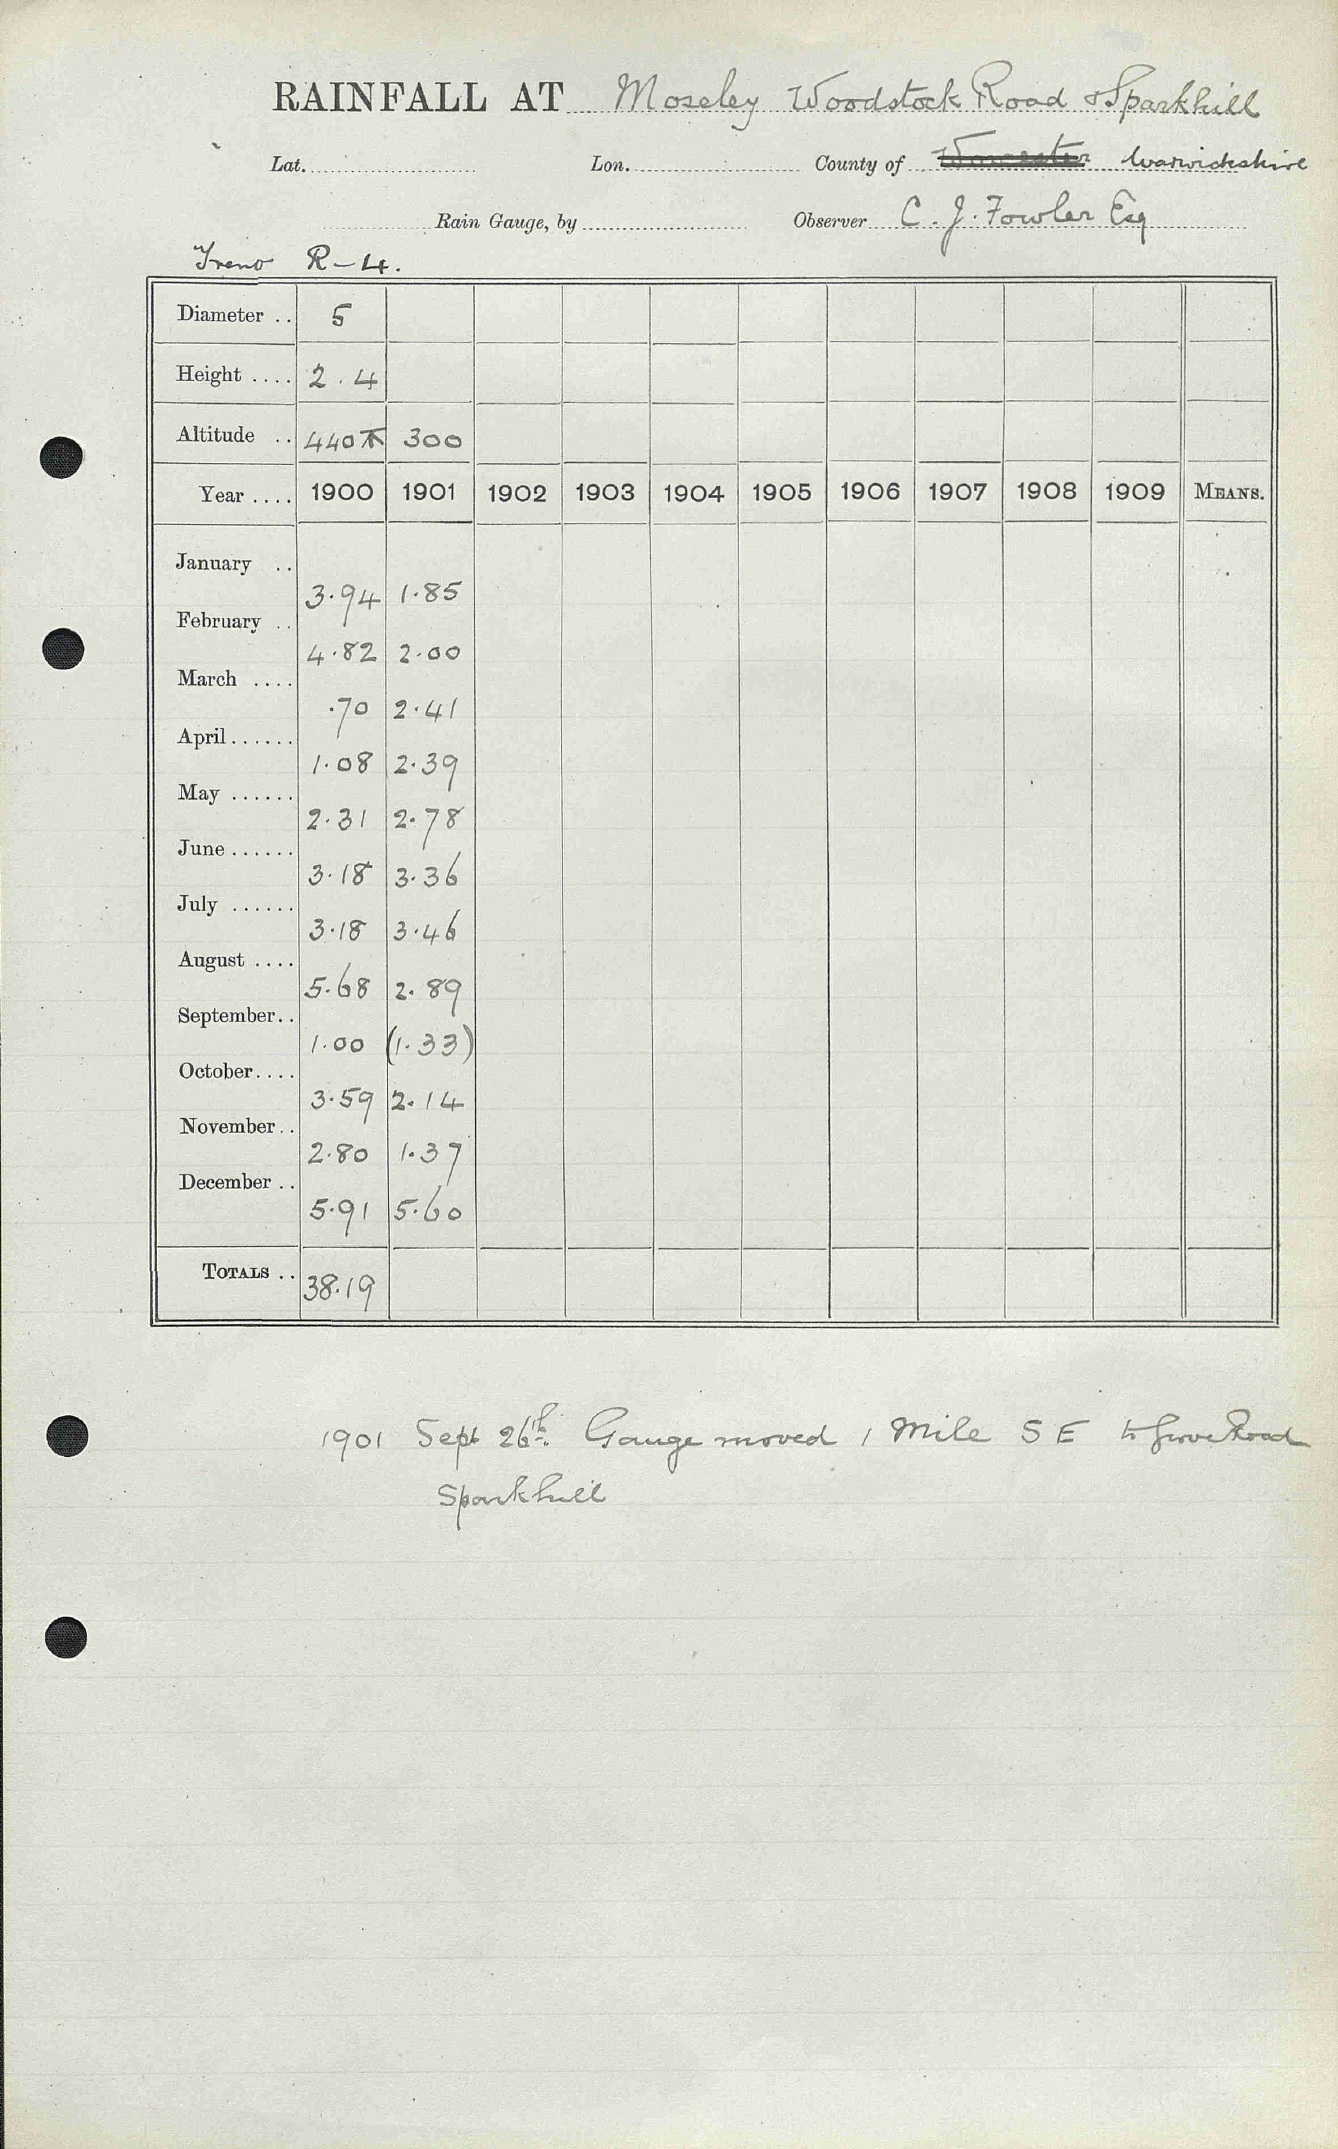 RAINFALL AT Moseley Woodstock Road & Sparkhill
Lat. Lon. County of Worcester Warwickshire
Rain Gauge, by Observer C. J. Fowler Esq
R-4.
Diameter .. 5
Height .... 2.4
Altitude .. 440 300
Year .... 1900 1901 1902 1903 1904 1905 1906 1907 1908 1909 MEANS.
January .. 3.94 1.85
February .. 4.82 2.00
March .... .70 2.41
April...... 1.08 2.39
May ...... 2.31 2.78
June ...... 3.18 3.36
July ...... 3.18 3.46
August .... 5.68 2.89
September.. 1.00 (1.33)
October.... 3.59 2.14
November.. 2.80 1.37
December .. 5.91 5.60
TOTALS .. 38.19
1901 Sept 26th. Gauge moved 1 Mile S E to Grove Road
Sparkhill